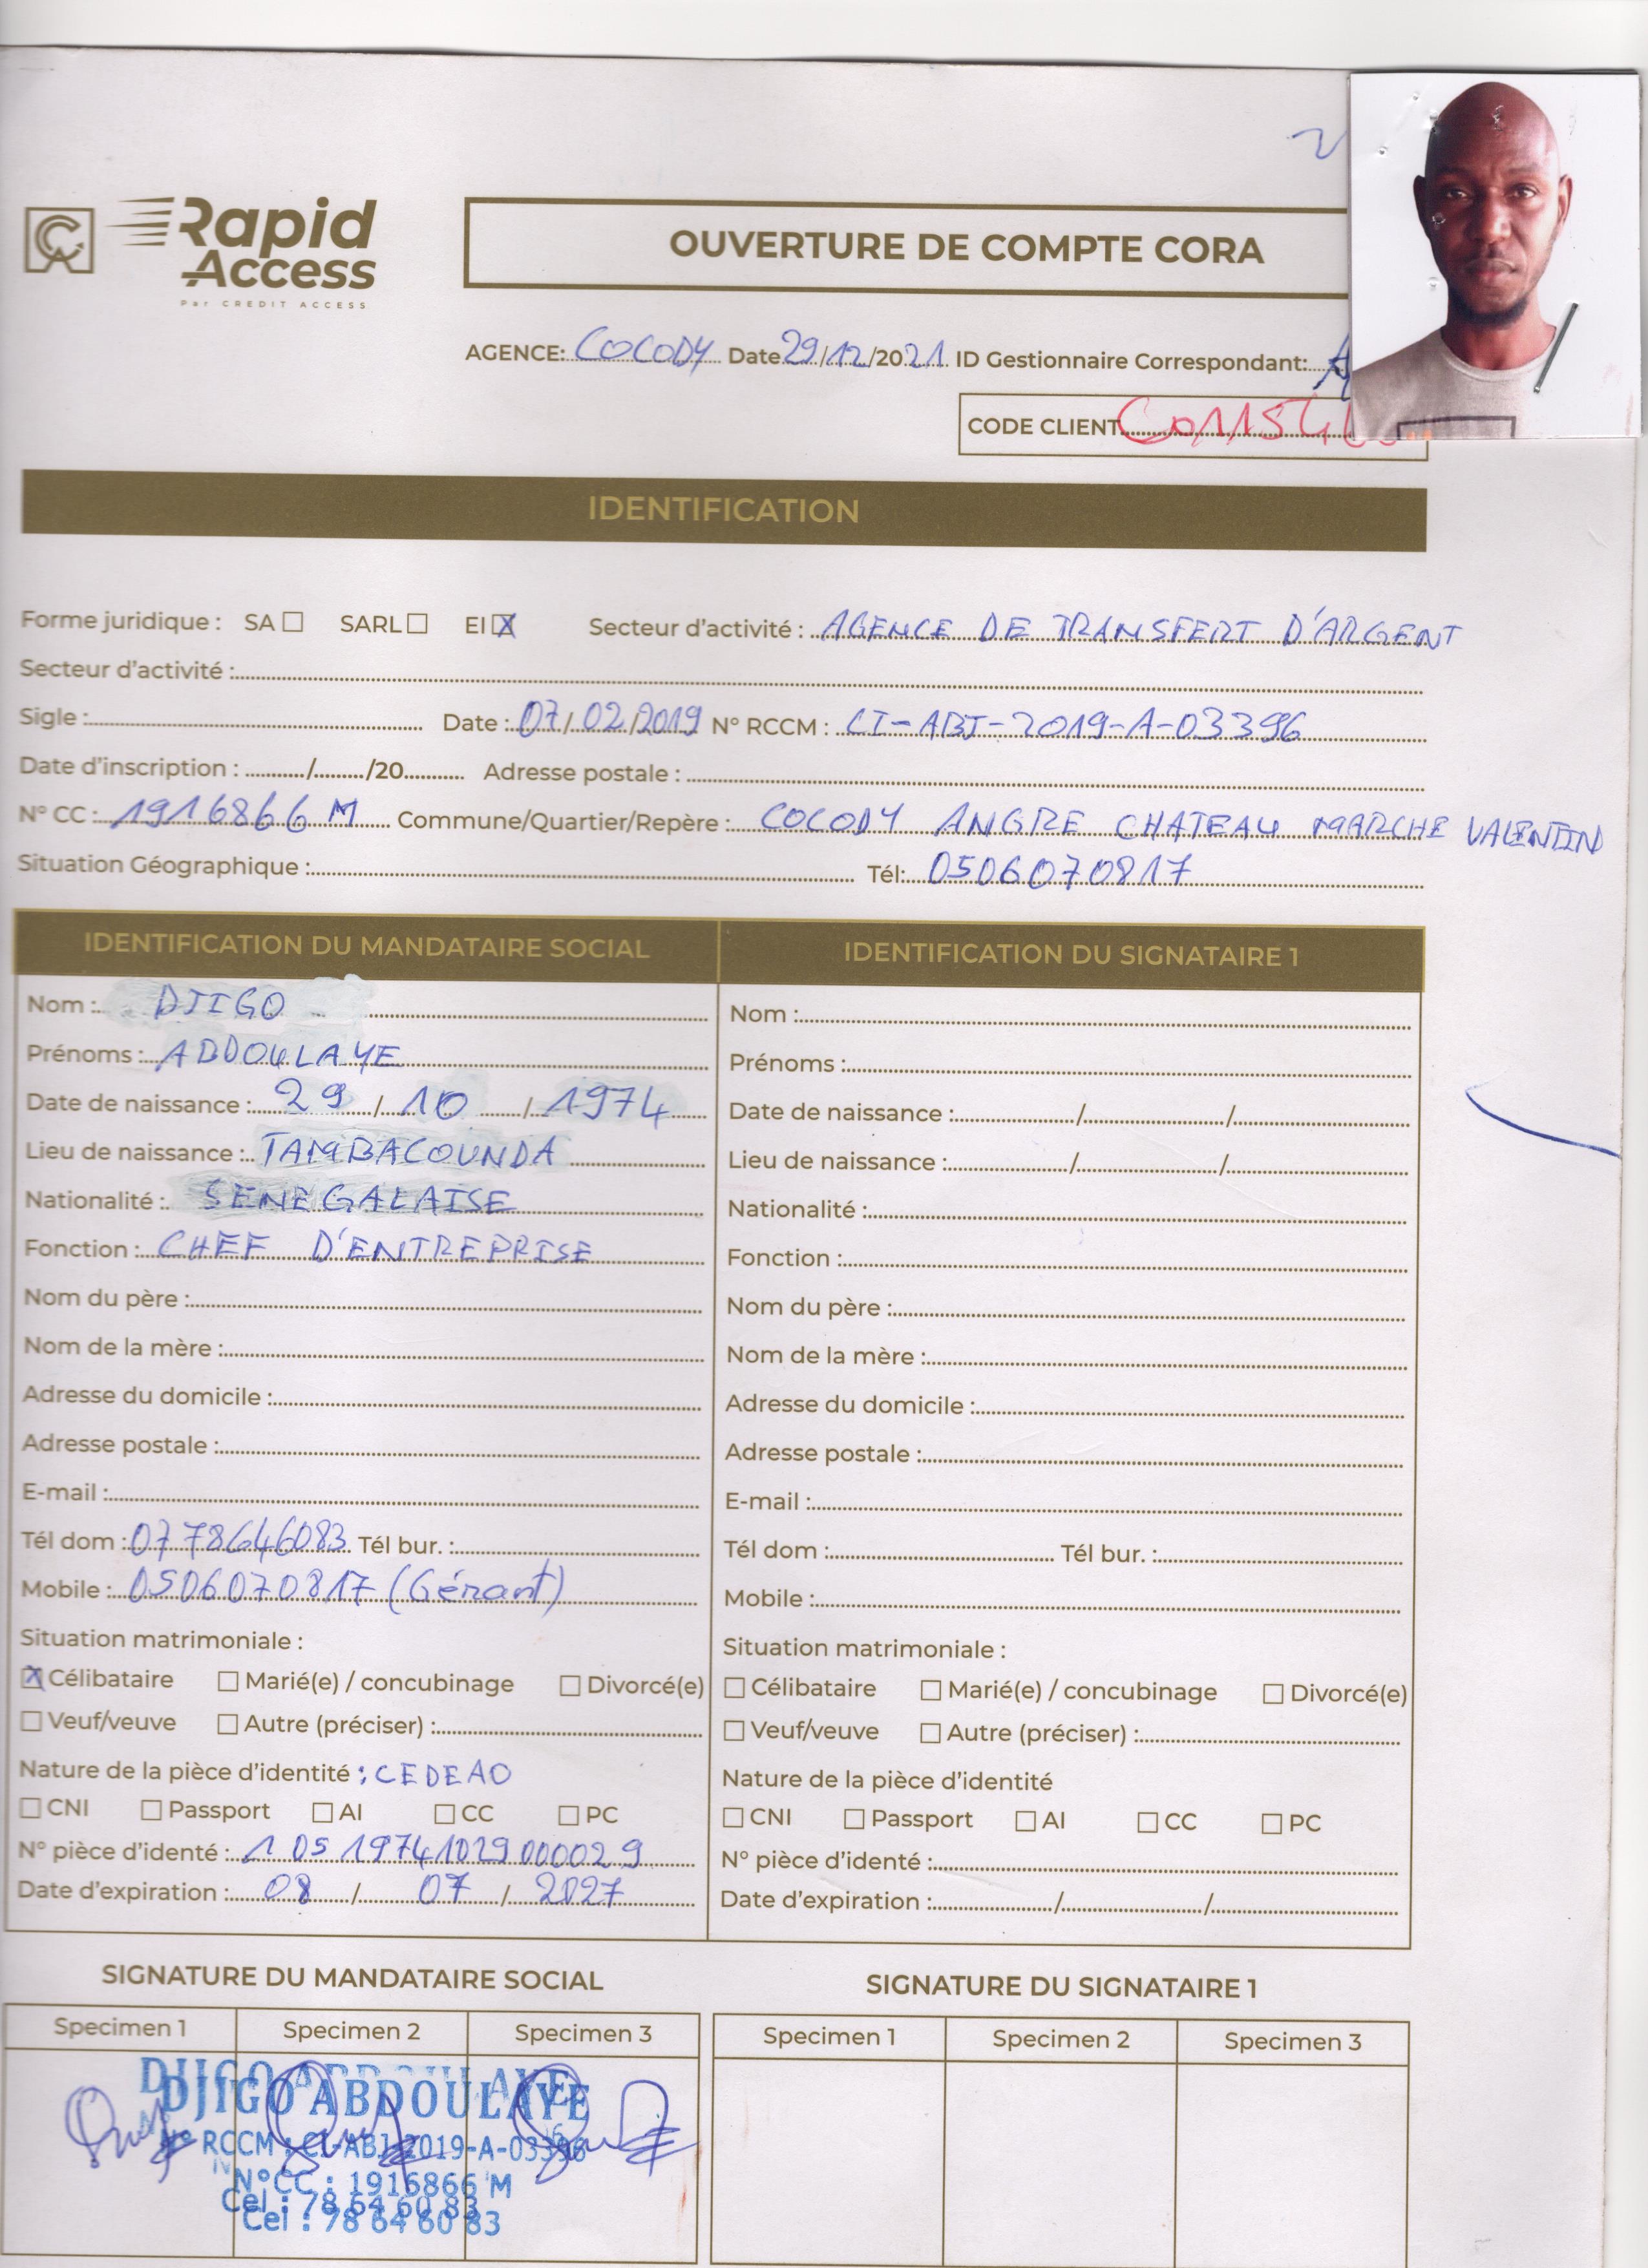 Rapid
Access
Par CREDIT ACCESS
OUVERTURE DE COMPTE CORA
AGENCE: COCODY Date 29/12/2021 ID Gestionnaire Correspondant:
CODE CLIENT
IDENTIFICATION
Forme juridique : SA ☐ SARL ☐ EI ☒ Secteur d'activité : AGENCE DE TRANSFERT D'ARGENT
Secteur d'activité :
Sigle : Date : 07/02/2019 N° RCCM : CI-ABJ-2019-A-03396
Date d'inscription : / /20 Adresse postale :
N° CC : 1916866 M Commune/Quartier/Repère : COCODY ANGRE CHATEAU MARCHE VALENTIN
Situation Géographique : Tél: 0506070817
IDENTIFICATION DU MANDATAIRE SOCIAL
Nom : DJIGO
Prénoms : ABDOULAYE
Date de naissance : 29 / 10 / 1974
Lieu de naissance : TAMBACOUNDA
Nationalité : SENEGALAISE
Fonction : CHEF D'ENTREPRISE
Nom du père :
Nom de la mère :
Adresse du domicile :
Adresse postale :
E-mail :
Tél dom : 0778646083 Tél bur. :
Mobile : 0506070817 (Gérant)
Situation matrimoniale :
☒ Célibataire ☐ Marié(e) / concubinage ☐ Divorcé(e)
☐ Veuf/veuve ☐ Autre (préciser) :
Nature de la pièce d'identité : CEDEAO
☐ CNI ☐ Passport ☐ AI ☐ CC ☐ PC
N° pièce d'identé : 1 05 19741029 00002 9
Date d'expiration : 08 / 07 / 2027
IDENTIFICATION DU SIGNATAIRE 1
Nom :
Prénoms :
Date de naissance : / /
Lieu de naissance : / /
Nationalité :
Fonction :
Nom du père :
Nom de la mère :
Adresse du domicile :
Adresse postale :
E-mail :
Tél dom : Tél bur. :
Mobile :
Situation matrimoniale :
☐ Célibataire ☐ Marié(e) / concubinage ☐ Divorcé(e)
☐ Veuf/veuve ☐ Autre (préciser) :
Nature de la pièce d'identité
☐ CNI ☐ Passport ☐ AI ☐ CC ☐ PC
N° pièce d'identé :
Date d'expiration : / /
SIGNATURE DU MANDATAIRE SOCIAL
Specimen 1 Specimen 2 Specimen 3
DJIGO ABDOULAYE
N° RCCM : CI-ABJ-2019-A-03396
N°CC : 1916866 M
Cel : 78 64 60 83
Cel : 78 64 60 83
SIGNATURE DU SIGNATAIRE 1
Specimen 1 Specimen 2 Specimen 3